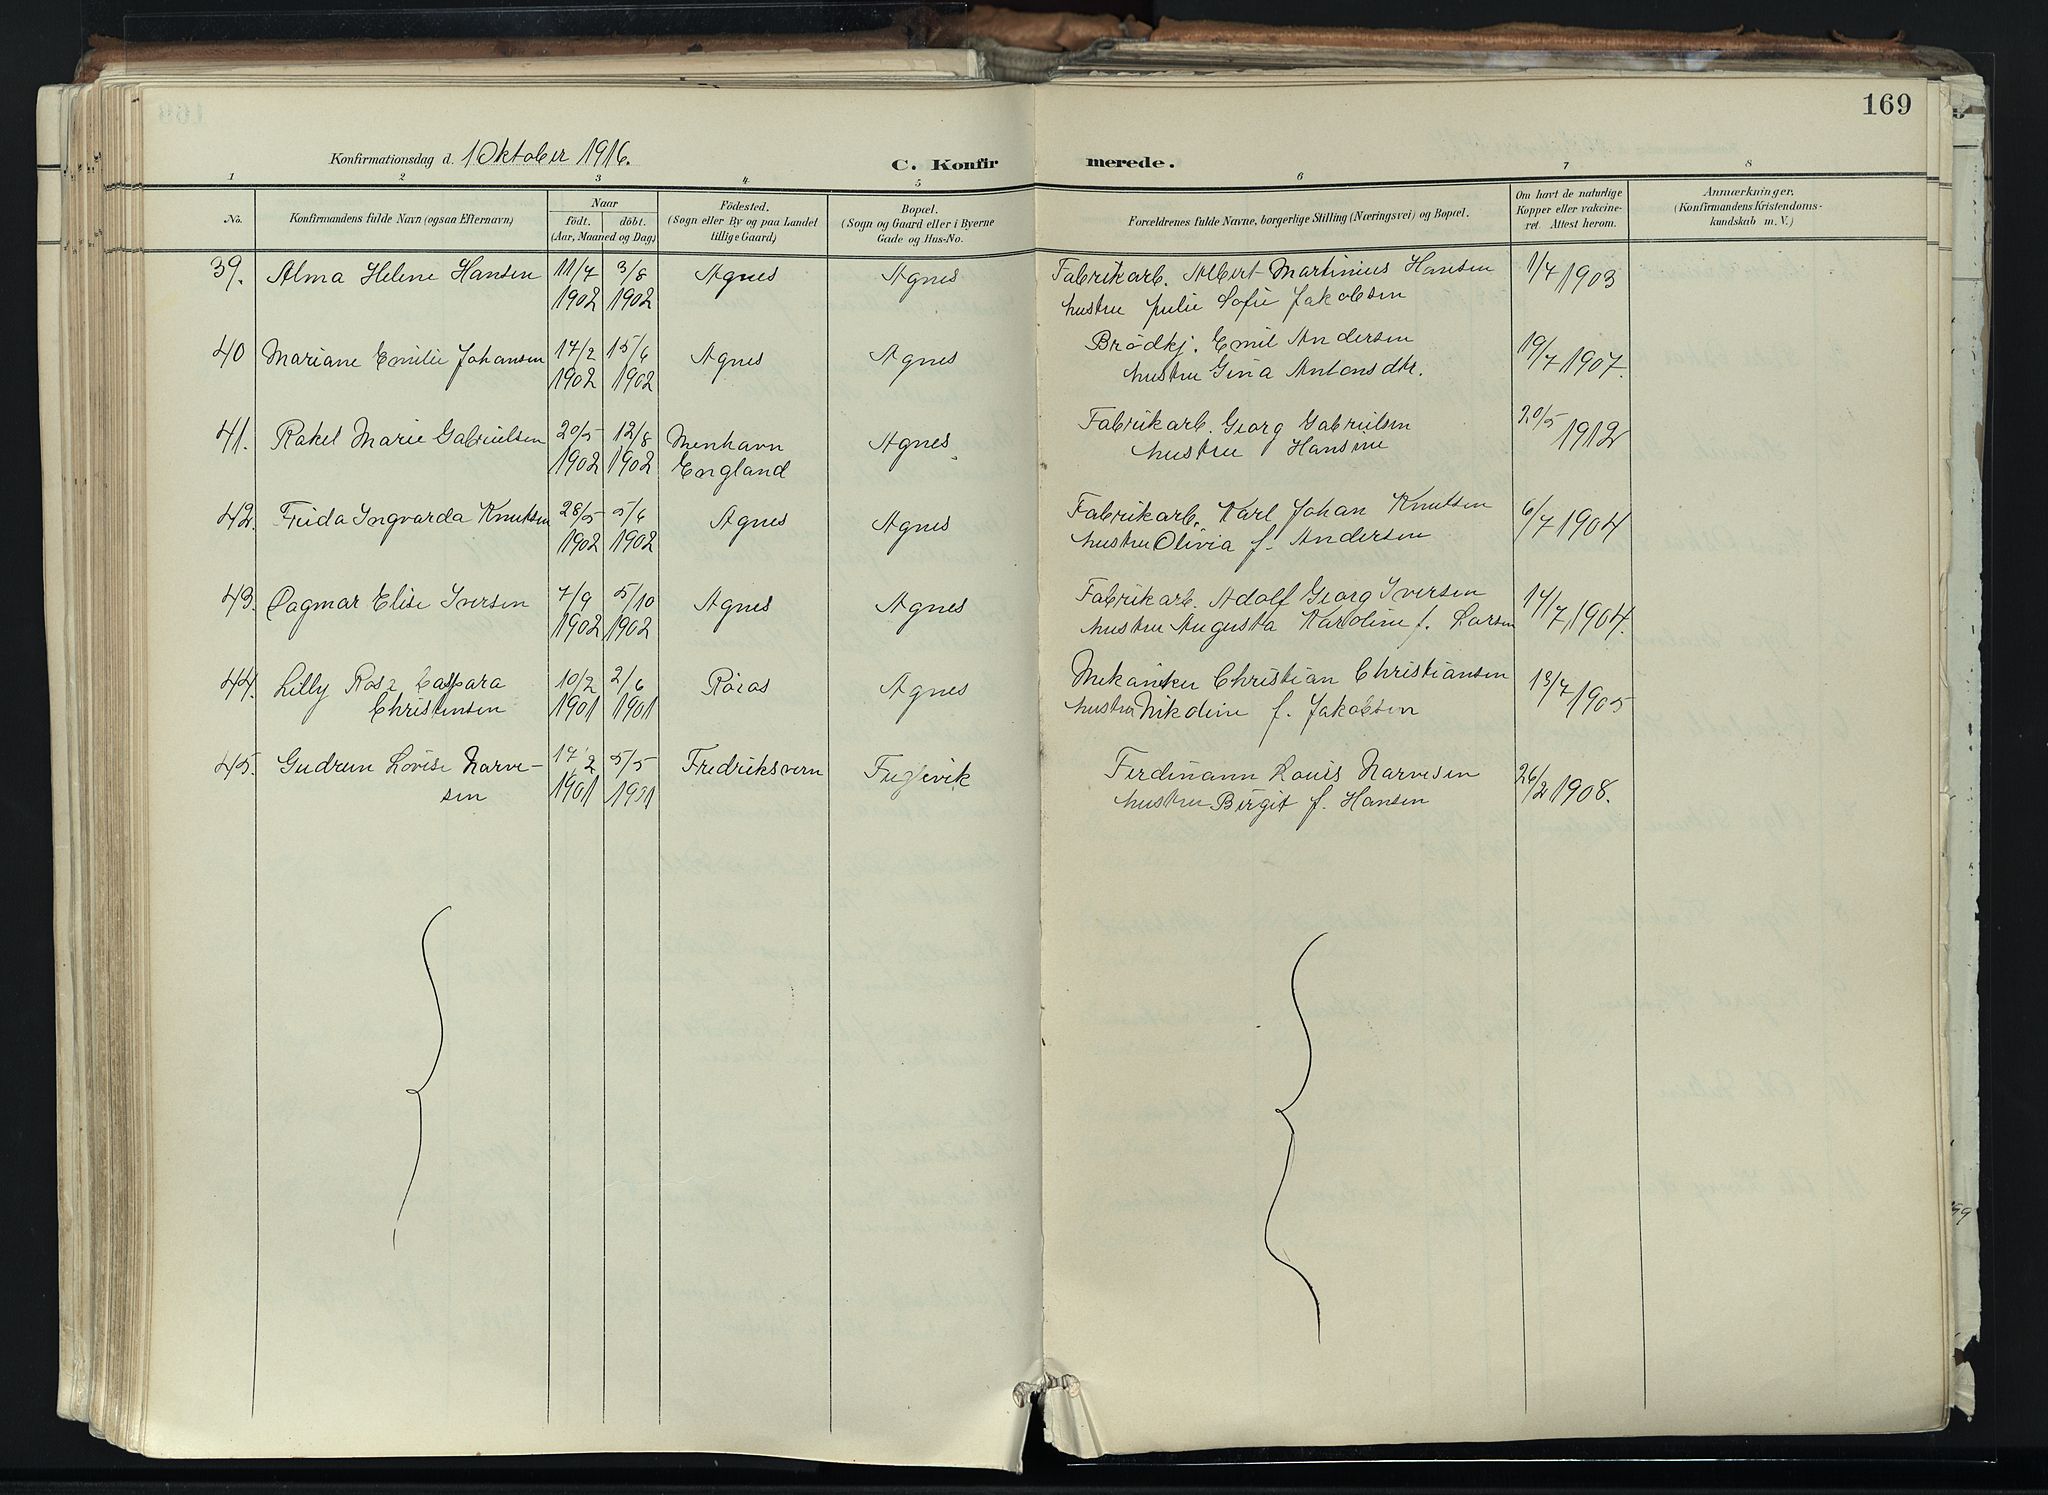 169
Konfirmationsdag d. 1 Oktober 1916.
C. Konfir merede.
1 2 3 4 5 6 7 8
No.
Konfirmandens fulde Navn (ogsaa Efternavn)
Naar
födt. döbt.
(Aar, Maaned og Dag)
Födested.
(Sogn eller By og paa Landet
tillige Gaard)
Bopæl.
(Sogn og Gaard eller i Byerne
Gade og Hus-No.
Forældrenes fulde Navne, borgerlige Stilling (Næringsvei) og Bopæl.
Om havt de naturlige
Kopper eller vakcine-
ret. Attest herom.
Anmærkninger.
(Konfirmandens Kristendoms-
kundskab m. V.)
39. Alma Helene Hansen 11/7 3/8 Agnes Agnes Fabrikarb. Albert Martinius Hansen 1/7 1903
1902 1902 hustru Julie Sofie Jakobsen
40 Mariane Emilie Johansen 17/2 15/6 Agnes Agnes Brødkj. Emil Andersen 19/7 1907.
1902 1902 hustru Gina Antonsdtr.
41. Rakel Marie Gabrielsen 20/5 12/8 Agnes Fabrikarb. Georg Gabrielsen 20/5 1912
1902 1902 England hustru Hansine
42. Frida Ingvarda Knutsen 28/5 5/6 Agnes Agnes Fabrikarb. Karl Johan Knutsen 6/7 1904
1902 1902 hustru Olivia f. Andersen
43. Dagmar Elise Iversen 7/9 5/10 Agnes Agnes Fabrikarb. Adolf Georg Iversen 14/7 1904.
1902 1902 hustru Augusta Karoline f. Larsen
44. Lilly Rosa Caspara 10/2 2/6 Røras Agnes Mekaniker Christian Christiansen 13/7 1905
Christensen 1901 1901 hustru Nikoline f. Jakobsen
45. Gudrun Lovise Narve- 17/2 5/5 Fredriksvern Fuglevik Ferdinann Louis Narvesen 26/2 1908.
sen 1901 1901 hustru Birgit f. Hansen